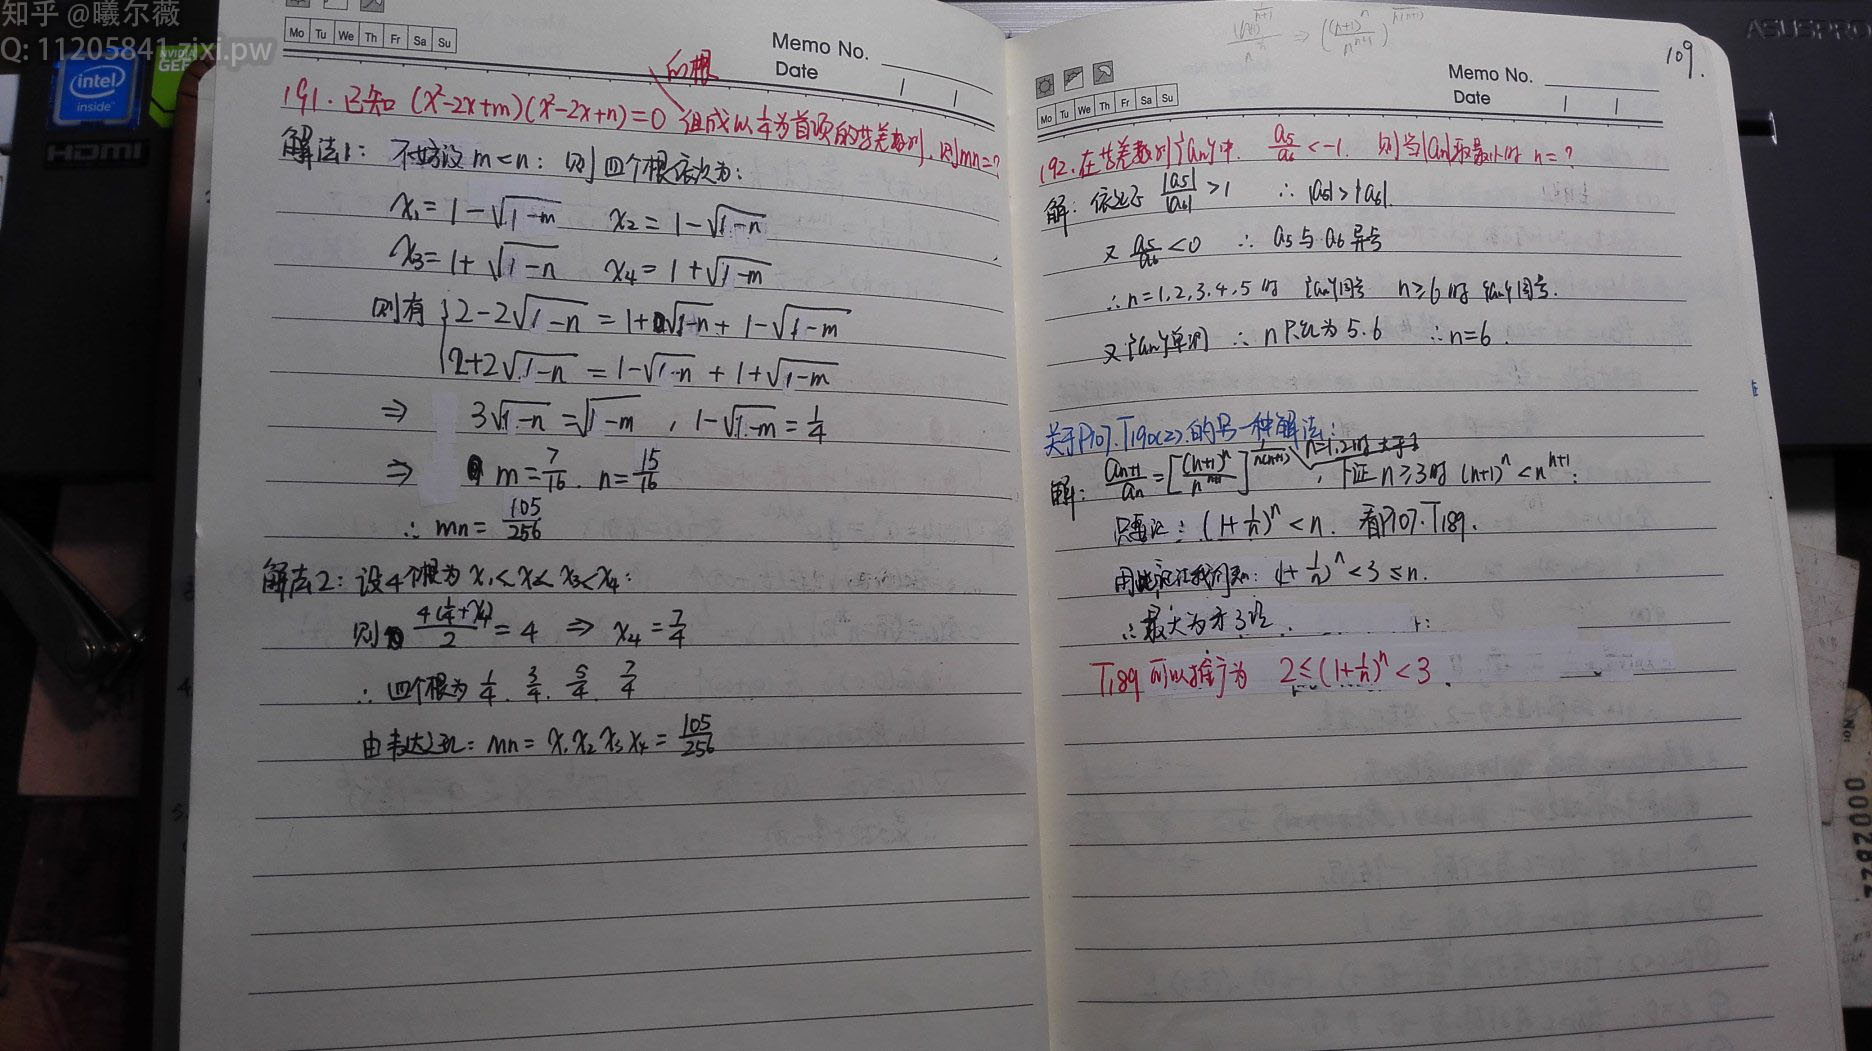 知乎 @曦尔薇
Q: 11205841.zixi.pw
intel
inside
NVIDIA
GEF
HDMI
Mo Tu We Th Fr Sa Su
Memo No.
Date
的根
191. 已知 (x²-2x+m)(x²-2x+n)=0 组成以1/4为首项的等差数列, 则mn=?
解法1: 不妨设 m<n: 则四个根依次为:
x₁=1-√(1-m) x₂=1-√(1-n)
x₃=1+√(1-n) x₄=1+√(1-m)
则有 { 2-2√(1-n) = 1+√(1-n) + 1-√(1-m)
2+2√(1-n) = 1-√(1-n) + 1+√(1-m)
⇒ 3√(1-n) = √(1-m) , 1-√(1-m) = 1/4
⇒ m=7/16. n=15/16
∴ mn= 105/256
解法2: 设4个根为 x₁<x₂<x₃<x₄:
则 4(1/4+x₄)/2 = 4 ⇒ x₄=7/4
∴ 四个根为 1/4. 3/4. 5/4 7/4
由韦达定理: mn= x₁x₂x₃x₄ = 105/256
ASUSPRO
109.
Mo Tu We Th Fr Sa Su
Memo No.
Date
192. 在等差数列{an}中. a₅/a₆<-1. 则当|an|取最小时 n=?
解: 依题 |a₅|/|a₆|>1 ∴ |a₅|>|a₆|.
又 a₅/a₆<0 ∴ a₅与a₆异号
∴ n=1,2,3,4,5时 {an}同号 n≥6时 {an}同号.
又{an}单调 ∴ n只能为5.6 ∴ n=6.
关于P107.T190(2).的另一种解法:
解: aₙ₊₁/aₙ = [(n+1)ⁿ/nⁿ⁺¹]^(1/n(n+1)) , n=1,2时大于1 下证 n≥3时 (n+1)ⁿ<nⁿ⁺¹:
只要证: (1+1/n)ⁿ<n. 看P107.T189.
(1+1/n)ⁿ<3≤n.
∴ 最大为第3项.
T189可以推广为 2≤(1+1/n)ⁿ<3.
7792000